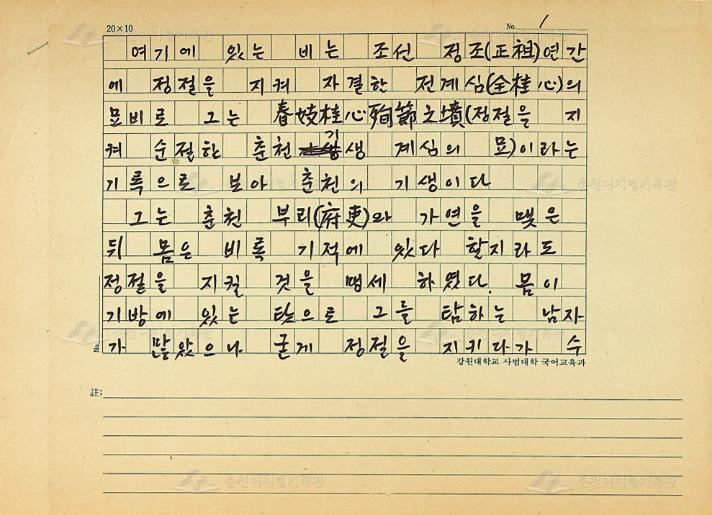 20×10
No. 1
여기에 있는 비는 조선 정조(正祖)연간
에 정절을 지켜 자결한 전계심(全桂心)의
묘비로 그는 春妓桂心殉節之墳(정절을 지
켜 순절한 춘천 기생 계심의 묘)이라는
기록으로 보아 춘천의 기생이다
그는 춘천 부리(府吏)와 가연을 맺은
뒤 몸은 비록 기적에 있다 할지라도
정절을 지킬 것을 맹세 하였다. 몸이
기방에 있는 탓으로 그를 탐하는 남자
가 많았으나 굳게 정절을 지키다가 수
강원대학교 사범대학 국어교육과
註:
춘천디지털기록관